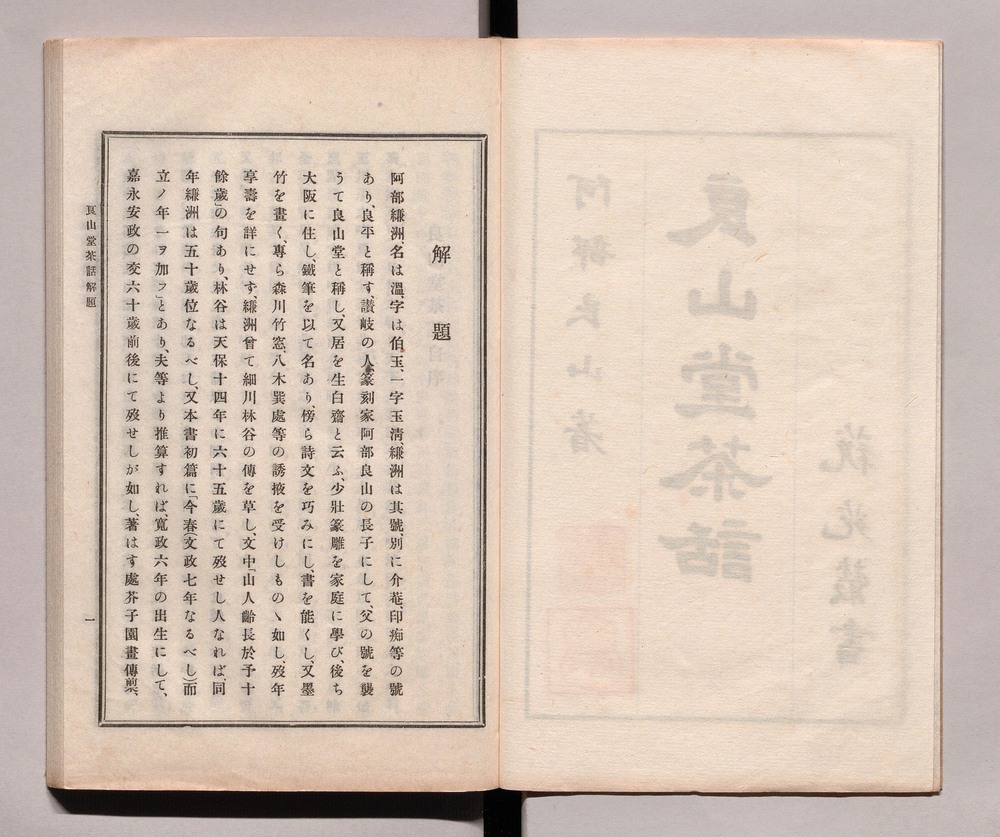 解題
阿部縑洲、名は溫、字は伯玉、一字玉淸、縑洲は其號、別に介菴、印痴等の號
あり、良平と稱す、讃岐の人、篆刻家阿部良山の長子にして、父の號を襲
うて良山堂と稱し、又居を生白齋と云ふ、少壯篆雕を家庭に學び、後ち
大阪に住し、鐵筆を以て名あり、傍ら詩文を巧みにし、書を能くし、又墨
竹を畫く、專ら森川竹窓、八木巽處等の誘掖を受けしものヽ如し、歿年
享壽を詳にせず、縑洲曾て細川林谷の傳を草し、文中「山人齡長於予十
餘歲」の句あり、林谷は天保十四年に六十五歲にて歿せし人なれば、同
年縑洲は五十歲位なるべし、又本書初篇に「今春(文政七年なるべし)而
立ノ年一ヲ加フ」とあり、夫等より推算すれば、寬政六年の出生にして、
嘉永安政の交六十歲前後にて歿せしが如し、著はす處芥子園畫傳
良山堂茶話解題
一
良山堂茶話
阿部良山著
叢書